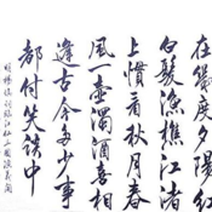 在幾度夕陽紅
白髮漁樵江渚
上慣看秋月春
風一壺濁酒喜相
逢古今多少事
都付笑談中